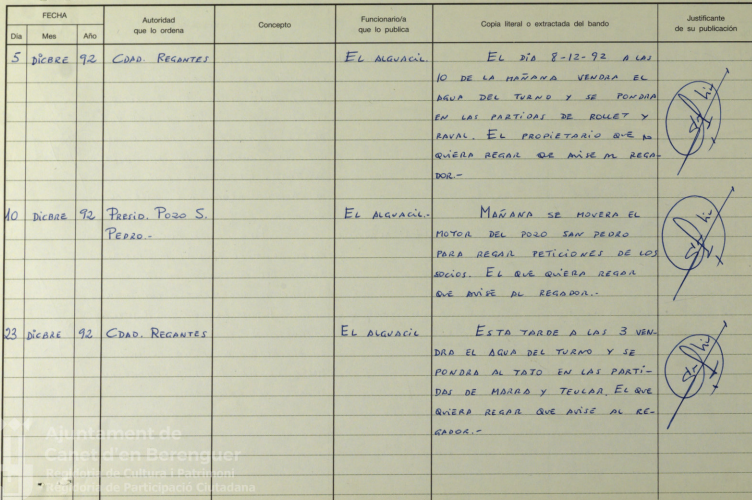 FECHA
Día Mes Año
Autoridad
que lo ordena
Concepto
Funcionario/a
que lo publica
Copia literal o extractada del bando
Justificante
de su publicación
5 DICBRE 92 CDAD. REGANTES EL ALGUACIL. EL DÍA 8-12-92 A LAS
10 DE LA MAÑANA VENDRA EL
AGUA DEL TURNO Y SE PONDRA
EN LAS PARTIDAS DE ROLLET Y
RAVAL. EL PROPIETARIO QUE
QUIERA REGAR QUE AVISE AL REGA-
DOR.-
10 DICBRE 92 PRESID. POZO S. EL ALGUACIL.- MAÑANA SE MOVERA EL
PEDRO.- MOTOR DEL POZO SAN PEDRO
PARA REGAR PETICIONES DE LOS
SOCIOS. EL QUE QUIERA REGAR
QUE AVISE AL REGADOR.-
23 DICBRE 92 CDAD. REGANTES EL ALGUACIL ESTA TARDE A LAS 3 VEN-
DRA EL AGUA DEL TURNO Y SE
PONDRA AL TAJO EN LAS PARTI-
DAS DE MARRA Y TEULAR. EL QUE
QUIERA REGAR QUE AVISE AL RE-
GADOR.-
Ajuntament de
Canet d'en Berenguer
Regidoria de Cultura i Patrimoni
Regidoria de Participació Ciutadana